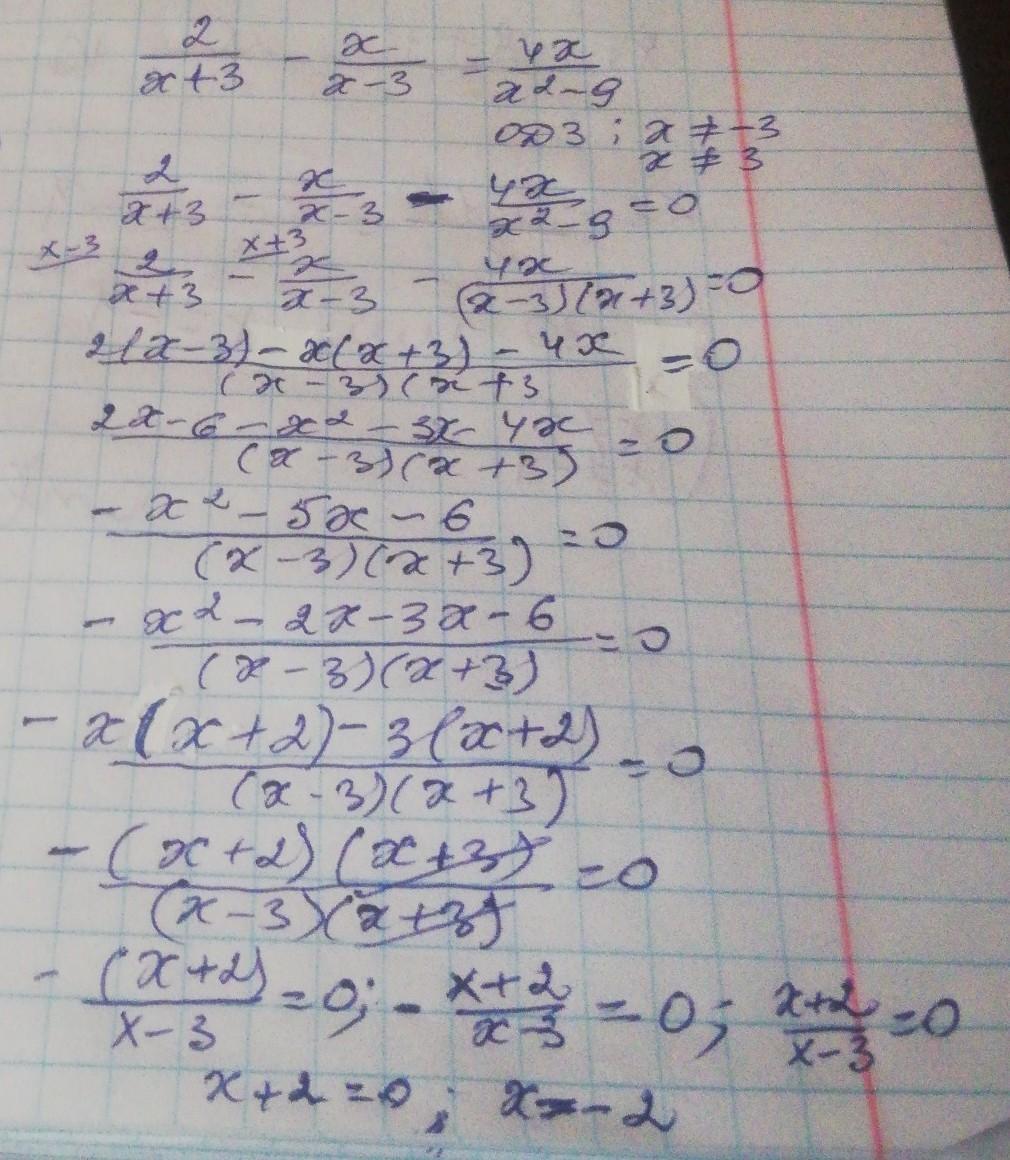 2/(x+3) - x/(x-3) = 4x/(x²-9)
ОДЗ; x ≠ -3
x ≠ 3
2/(x+3) - x/(x-3) - 4x/(x²-9) = 0
x-3 x+3
2/(x+3) - x/(x-3) - 4x/((x-3)(x+3)) = 0
2(x-3)-x(x+3)-4x / (x-3)(x+3 = 0
2x-6-x²-3x-4x / (x-3)(x+3) = 0
-x²-5x-6 / (x-3)(x+3) = 0
-x²-2x-3x-6 / (x-3)(x+3) = 0
-x(x+2)-3(x+2) / (x-3)(x+3) = 0
-(x+2)(x+3) / (x-3)(x+3) = 0
-(x+2)/(x-3) = 0; - x+2/(x-3) = 0; x+2/(x-3) = 0
x+2=0; x=-2